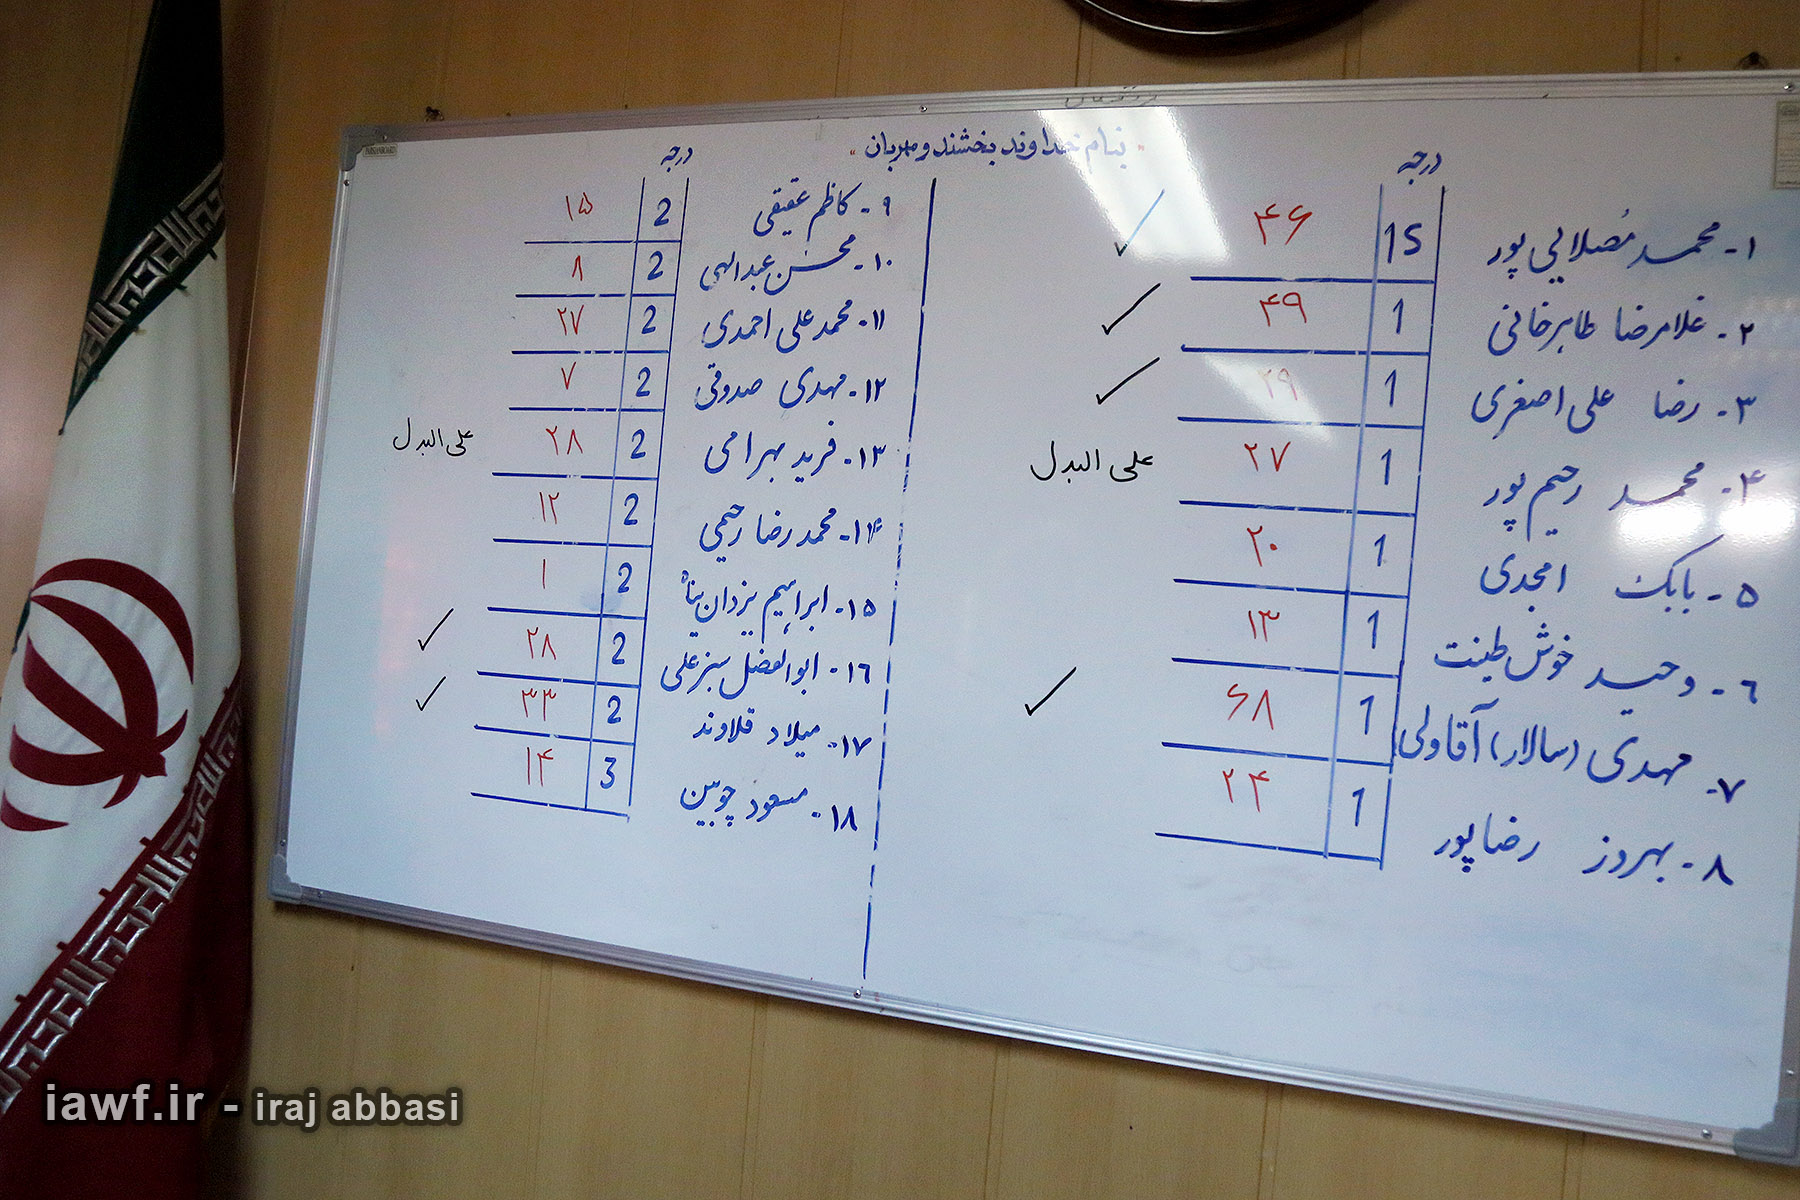 " بنام خداوند بخشنده و مهربان "
درجه
۱- محمد مُصلایی پور 1S ۴۶ ✓
۲- غلامرضا طاهرخانی 1 ۴۹ ✓
۳- رضا علی اصغری 1 ۲۹ ✓
۴- محمد رحیم پور 1 ۲۷ علی البدل
۵- بابک امجدی 1 ۲۰
۶- وحید خوش طینت 1 ۱۳
۷- مهدی (سالار) آقاولی 1 ۶۸ ✓
۸- بهروز رضاپور 1 ۲۴
درجه
۹- کاظم عقیقی 2 ۱۵
۱۰- محسن عبدالهی 2 ۸
۱۱- محمد علی احمدی 2 ۲۷
۱۲- مهدی صدوقی 2 ۷
۱۳- فرید بهرامی 2 ۲۸ علی البدل
۱۴- محمدرضا رحیمی 2 ۱۲
۱۵- ابراهیم یزدان پناه 2 ۱
۱۶- ابوالفضل سبزعلی 2 ۲۸ ✓
۱۷- میلاد قلاوند 2 ۳۳ ✓
۱۸- مسعود چوبین 3 ۱۴
iawf.ir - iraj abbasi